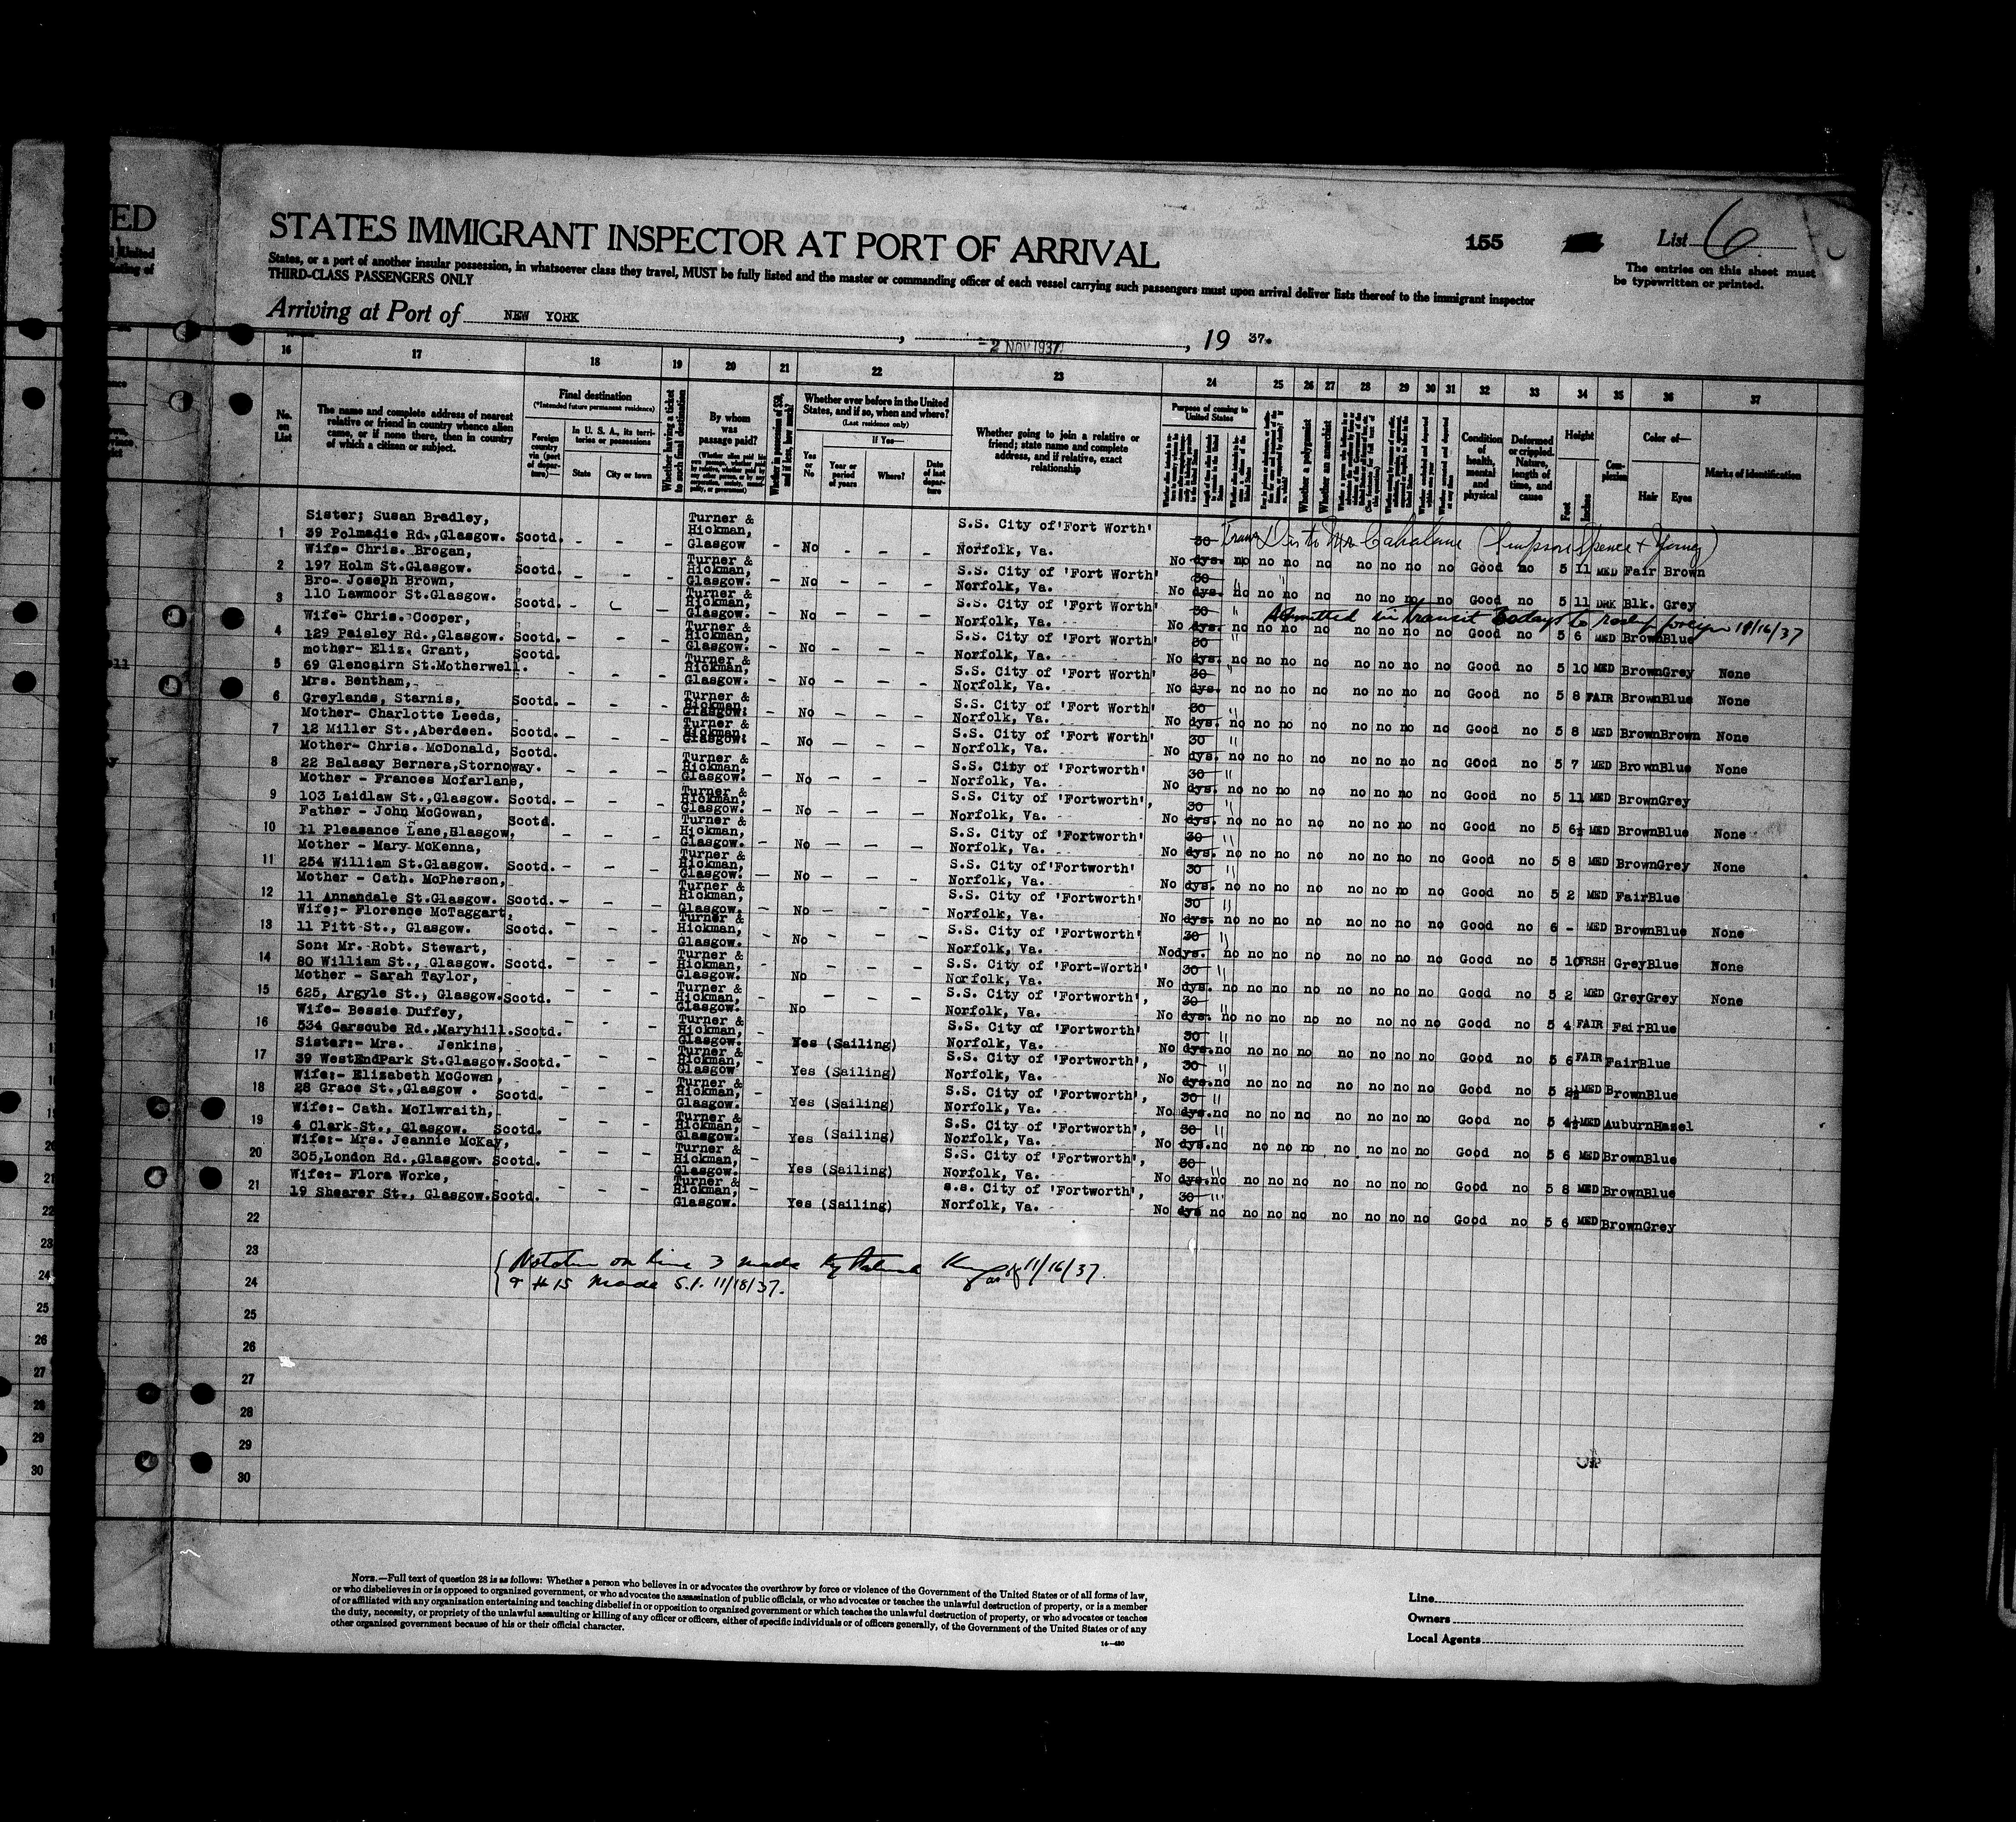 STATES IMMIGRANT INSPECTOR AT PORT OF ARRIVAL
155
List 6
States, or a port of another insular possession, in whatsoever class they travel, MUST be fully listed and the master or commanding officer of each vessel carrying such passengers must upon arrival deliver lists thereof to the immigrant inspector
THIRD-CLASS PASSENGERS ONLY
The entries on this sheet must
be typewritten or printed.
Arriving at Port of NEW YORK, -2 NOV 1937, 19 37.
16 17 18 19 20 21 22 23 24 25 26 27 28 29 30 31 32 33 34 35 36 37
No. on List
The name and complete address of nearest relative or friend in country whence alien came, or if none there, then in country of which a citizen or subject.
Final destination
(*Intended future permanent residence)
Foreign country via (port of departure)—
In U. S. A., its territories or possessions
State
City or town
Whether having a ticket to such final destination
By whom was passage paid?
Whether in possession of $50, and if less, how much?
Whether ever before in the United States, and if so, when and where?
(Last residence only)
If Yes—
Yes or No
Year or period of years
Where?
Date of last departure
Whether going to join a relative or friend; state name and complete address, and if relative, exact relationship
Purpose of coming to United States
Whether a polygamist
Whether an anarchist
Condition of health, mental and physical
Deformed or crippled. Nature, length of time, and cause
Height
Feet
Inches
Complexion
Color of—
Hair
Eyes
Marks of identification
1 Sister; Susan Bradley, 39 Polmadie Rd.,Glasgow. Scotd. - - - Turner & Hickman, Glasgow - No - - - S.S. City of 'Fort Worth' Norfolk, Va. No 30 dys. no no no no no no no no Good no 5 11 MED Fair Brown
2 Wife- Chris. Brogan, 197 Holm St.Glasgow. Scotd. - - - Turner & Hickman, Glasgow. - No - - - S.S. City of 'Fort Worth' Norfolk, Va. No 30 dys. no no no no no no no no Good no 5 11 DRK Blk. Grey
3 Bro- Joseph Brown, 110 Lawmoor St.Glasgow. Scotd. - - - Turner & Hickman, Glasgow. - No - - - S.S. City of 'Fort Worth' Norfolk, Va. No 30 dys. no no no no no no no no Good no 5 6 MED Brown Blue
Admitted in transit days to foreign 11/16/37
4 Wife- Chris. Cooper, 129 Paisley Rd.,Glasgow. Scotd. - - - Turner & Hickman, Glasgow. - No - - - S.S. City of 'Fort Worth' Norfolk, Va. No 30 dys. no no no no no no no no Good no 5 10 MED Brown Grey None
5 mother- Eliz. Grant, 69 Glencairn St.Motherwell. Scotd. - - - Turner & Hickman, Glasgow. - No - - - S.S. City of 'Fort Worth' Norfolk, Va. No 30 dys. no no no no no no no no Good no 5 8 FAIR Brown Blue None
6 Mrs. Bentham, Greylands, Starnis, Scotd. - - - Turner & Hickman, Glasgow. - No - - - S.S. City of 'Fort Worth' Norfolk, Va. No 30 dys. no no no no no no no no Good no 5 8 MED Brown Brown None
7 Mother- Charlotte Leeds, 12 Miller St.,Aberdeen. Scotd. - - - Turner & Hickman, Glasgow. - No - - - S.S. City of 'Fort Worth' Norfolk, Va. No 30 dys. no no no no no no no no Good no 5 7 MED Brown Blue None
8 Mother- Chris. McDonald, 22 Balasay Bernera,Stornoway. Scotd. - - - Turner & Hickman, Glasgow. - No - - - S.S. City of 'Fortworth' Norfolk, Va. No 30 dys. no no no no no no no no Good no 5 11 MED Brown Grey
9 Mother - Frances Mcfarlane, 103 Laidlaw St.,Glasgow. Scotd. - - - Turner & Hickman, Glasgow. - No - - - S.S. City of 'Fortworth', Norfolk, Va. No 30 dys. no no no no no no no no Good no 5 6½ MED Brown Blue None
10 Father - John McGowan, 11 Pleasance Lane,Glasgow, Scotd. - - - Turner & Hickman, Glasgow. - No - - - S.S. City of 'Fortworth' Norfolk, Va. No 30 dys. no no no no no no no no Good no 5 8 MED Brown Grey None
11 Mother - Mary McKenna, 254 William St.Glasgow. Scotd. - - - Turner & Hickman, Glasgow. - No - - - S.S. City of'Fortworth' Norfolk, Va. No 30 dys. no no no no no no no no Good no 5 2 MED Fair Blue
12 Mother - Cath. McPherson, 11 Annandale St.Glasgow. Scotd. - - - Turner & Hickman, Glasgow. - No - - - S.S. City of 'Fortworth' Norfolk, Va. No 30 dys. no no no no no no no no Good no 6 - MED Brown Blue None
13 Wife;- Florence McTaggart, 11 Pitt St., Glasgow. Scotd. - - - Turner & Hickman, Glasgow. - No - - - S.S. City of 'Fortworth' Norfolk, Va. No 30 dys. no no no no no no no no Good no 5 10 FRSH Grey Blue None
14 Son: Mr. Robt. Stewart, 80 William St., Glasgow. Scotd. - - - Turner & Hickman, Glasgow. - No - - - S.S. City of 'Fort-Worth' Norfolk, Va. No 30 dys. no no no no no no no no Good no 5 2 MED Grey Grey None
15 Mother - Sarah Taylor, 625, Argyle St., Glasgow. Scotd. - - - Turner & Hickman, Glasgow. - No - - - S.S. City of 'Fortworth', Norfolk, Va. No 30 dys. no no no no no no no no Good no 5 4 FAIR Fair Blue
16 Wife- Bessie Duffey, 534 Garscube Rd.,Maryhill. Scotd. - - - Turner & Hickman, Glasgow. - Yes (Sailing) S.S. City of 'Fortworth' Norfolk, Va. No 30 dys. no no no no no no no no Good no 5 6 FAIR Fair Blue
17 Sister:- Mrs. Jenkins, 39 WestEndPark St.Glasgow. Scotd. - - - Turner & Hickman, Glasgow - Yes (Sailing) S.S. City of 'Fortworth', Norfolk, Va. No 30 dys. no no no no no no no no Good no 5 2½ MED Brown Blue
18 Wife:- Elizabeth McGowan, 28 Grace St.,Glasgow . Scotd. - - - Turner & Hickman, Glasgow. - Yes (Sailing) S.S. City of 'Fortworth', Norfolk, Va. No 30 dys. no no no no no no no no Good no 5 4½ MED Auburn Hazel
19 Wife:- Cath. McIlwraith, 4 Clark St., Glasgow. Scotd. - - - Turner & Hickman, Glasgow. - Yes (Sailing) S.S. City of 'Fortworth', Norfolk, Va. No 30 dys. no no no no no no no no Good no 5 6 MED Brown Blue
20 Wife:- Mrs. Jeannie McKay, 305,London Rd.,Glasgow. Scotd. - - - Turner & Hickman, Glasgow. - Yes (Sailing) S.S. City of 'Fortworth', Norfolk, Va. No 30 dys. no no no no no no no no Good no 5 8 MED Brown Blue
21 Wife:- Flora Worke, 19 Shearer St., Glasgow. Scotd. - - - Turner & Hickman, Glasgow. - Yes (Sailing) s.s. City of 'Fortworth', Norfolk, Va. No 30 dys no no no no no no no no Good no 5 6 MED Brown Grey
22
23
24
Notation on line 3 made by 11/16/37.
& # 15 made S.I. 11/18/37.
25
26
27
28
29
30
NOTE.—Full text of question 28 is as follows: Whether a person who believes in or advocates the overthrow by force or violence of the Government of the United States or of all forms of law,
or who disbelieves in or is opposed to organized government, or who advocates the assassination of public officials, or who advocates or teaches the unlawful destruction of property, or is a member
of or affiliated with any organization entertaining and teaching disbelief in or opposition to organized government or which teaches the unlawful destruction of property, or who advocates or teaches
the duty, necessity, or propriety of the unlawful assaulting or killing of any officer or officers, either of specific individuals or of officers generally, of the Government of the United States or of any
other organized government because of his or their official character.
Line
Owners
Local Agents